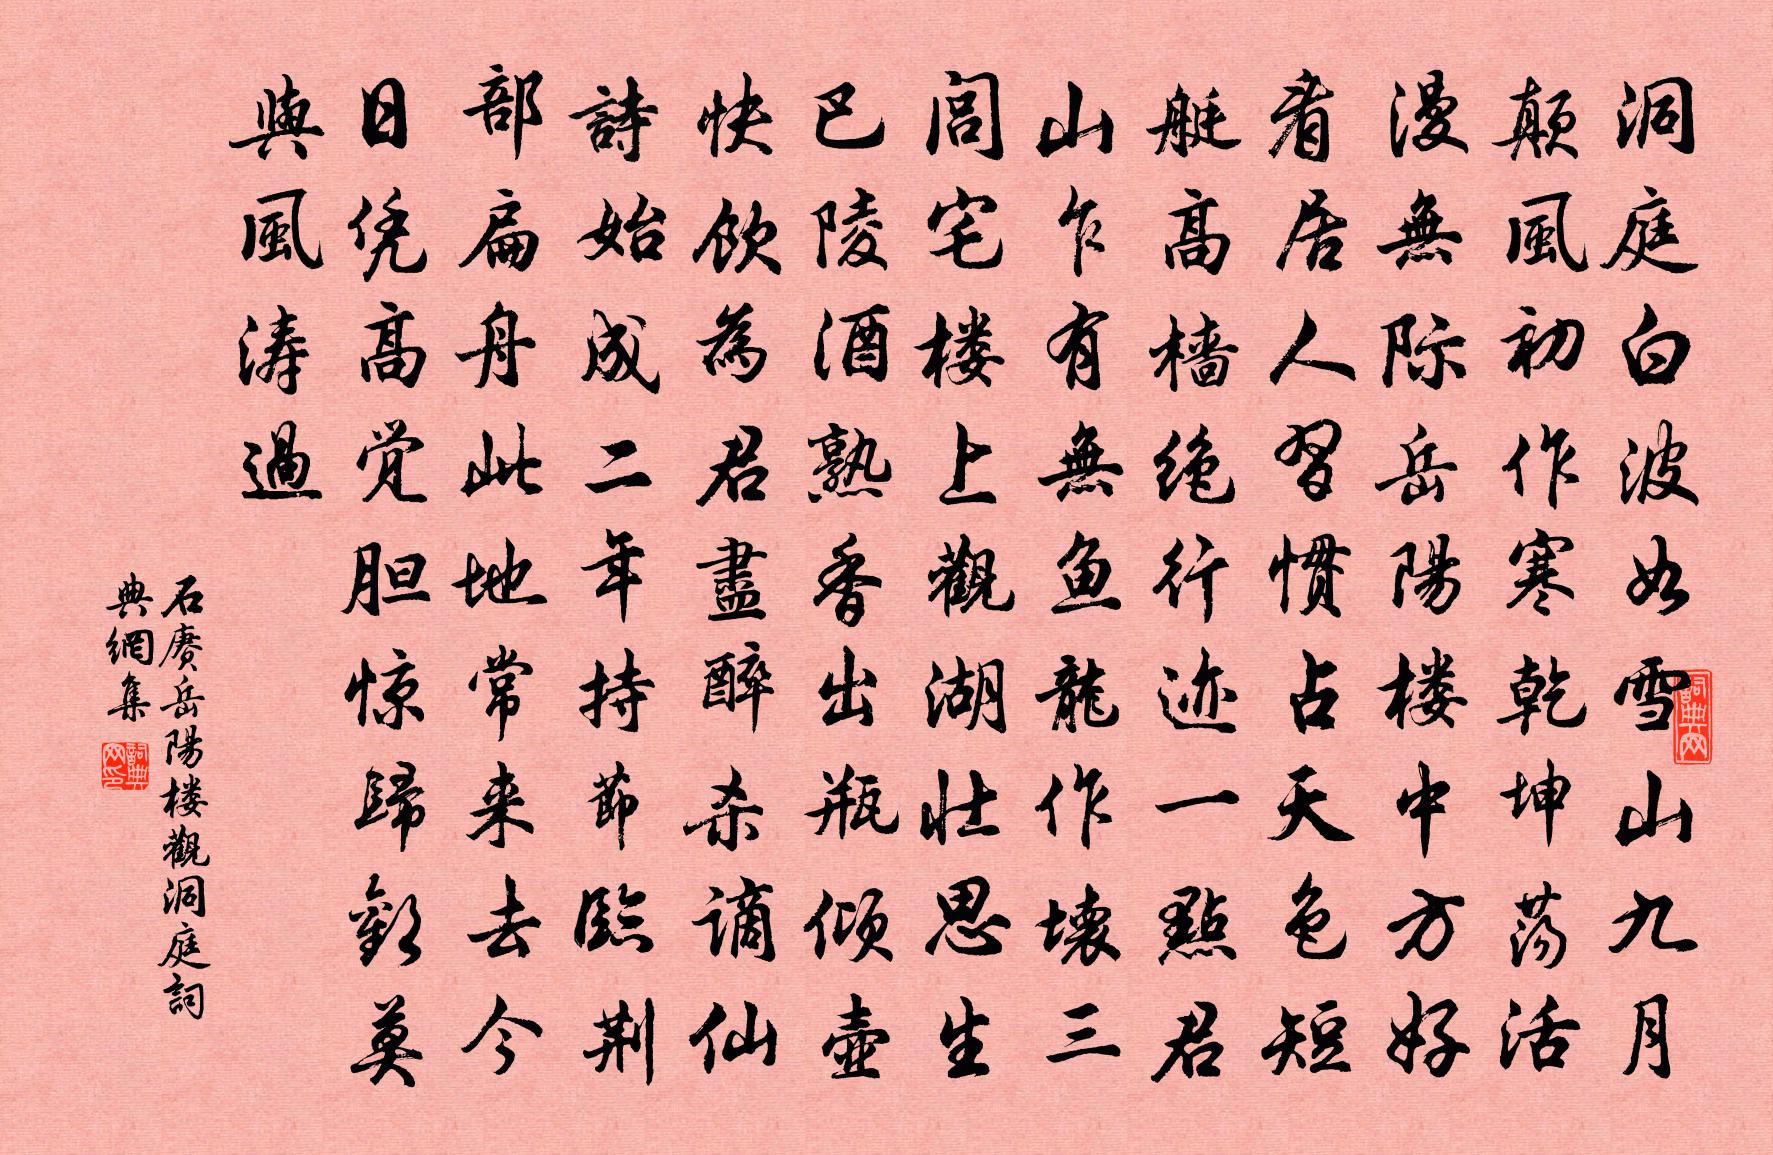 洞庭白波如雪山九月
颠風初作寒乾坤荡活
漫無际岳陽楼中方好
看居人習惯占天色短
艇高樯绝行迹一點君
山乍有無鱼龍作壊三
閭宅楼上觀湖壮思生
巴陵酒熟香出瓶倾壶
快飲為君盡醉杀谪仙
詩始成二年持節臨荆
部扁舟此地常来去今
日凭高觉胆惊歸勸莫
與風涛過
石赓岳陽楼觀洞庭詞
典網集
詞典网
詞典网印